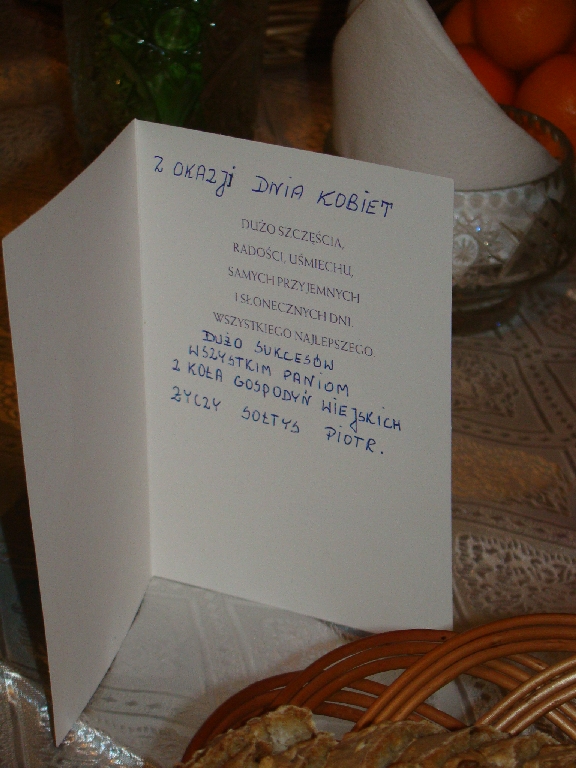 Z OKAZJI DNIA KOBIET
DUŻO SZCZĘŚCIA,
RADOŚCI, UŚMIECHU,
SAMYCH PRZYJEMNYCH
I SŁONECZNYCH DNI.
WSZYSTKIEGO NAJLEPSZEGO.
DUŻO SUKCESÓW
WSZYSTKIM PANIOM
Z KOŁA GOSPODYŃ WIEJSKICH
ŻYCZY SOŁTYS PIOTR.